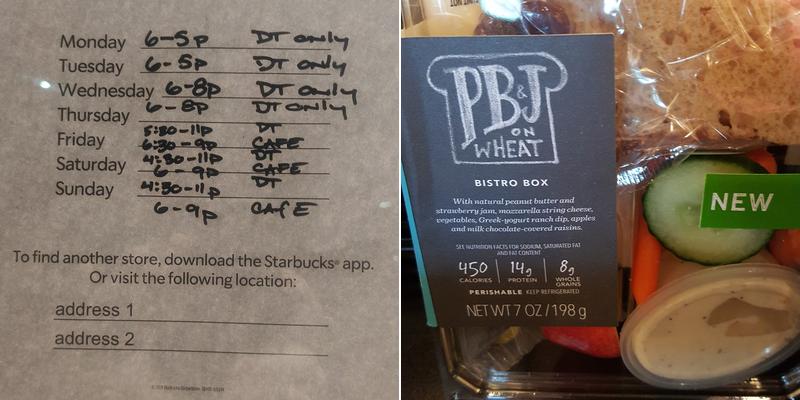 Monday 6-5p DT only
Tuesday 6-5p DT only
Wednesday 6-8p DT only
Thursday 6-8p DT only
Friday 5:30-11p DT
6:30-9p CAFE
Saturday 4:30-11p DT
6-9p CAFE
Sunday 4:30-11p DT
6-9p CAFE
To find another store, download the Starbucks® app.
Or visit the following location:
address 1
address 2
PB&J
ON
WHEAT
BISTRO BOX
With natural peanut butter and
strawberry jam, mozzarella string cheese,
vegetables, Greek-yogurt ranch dip, apples
and milk chocolate-covered raisins.
SEE NUTRITION FACTS FOR SODIUM, SATURATED FAT
AND FAT CONTENT
450 14g 8g
CALORIES PROTEIN WHOLE
GRAINS
PERISHABLE KEEP REFRIGERATED
NET WT 7 OZ/198 g
NEW